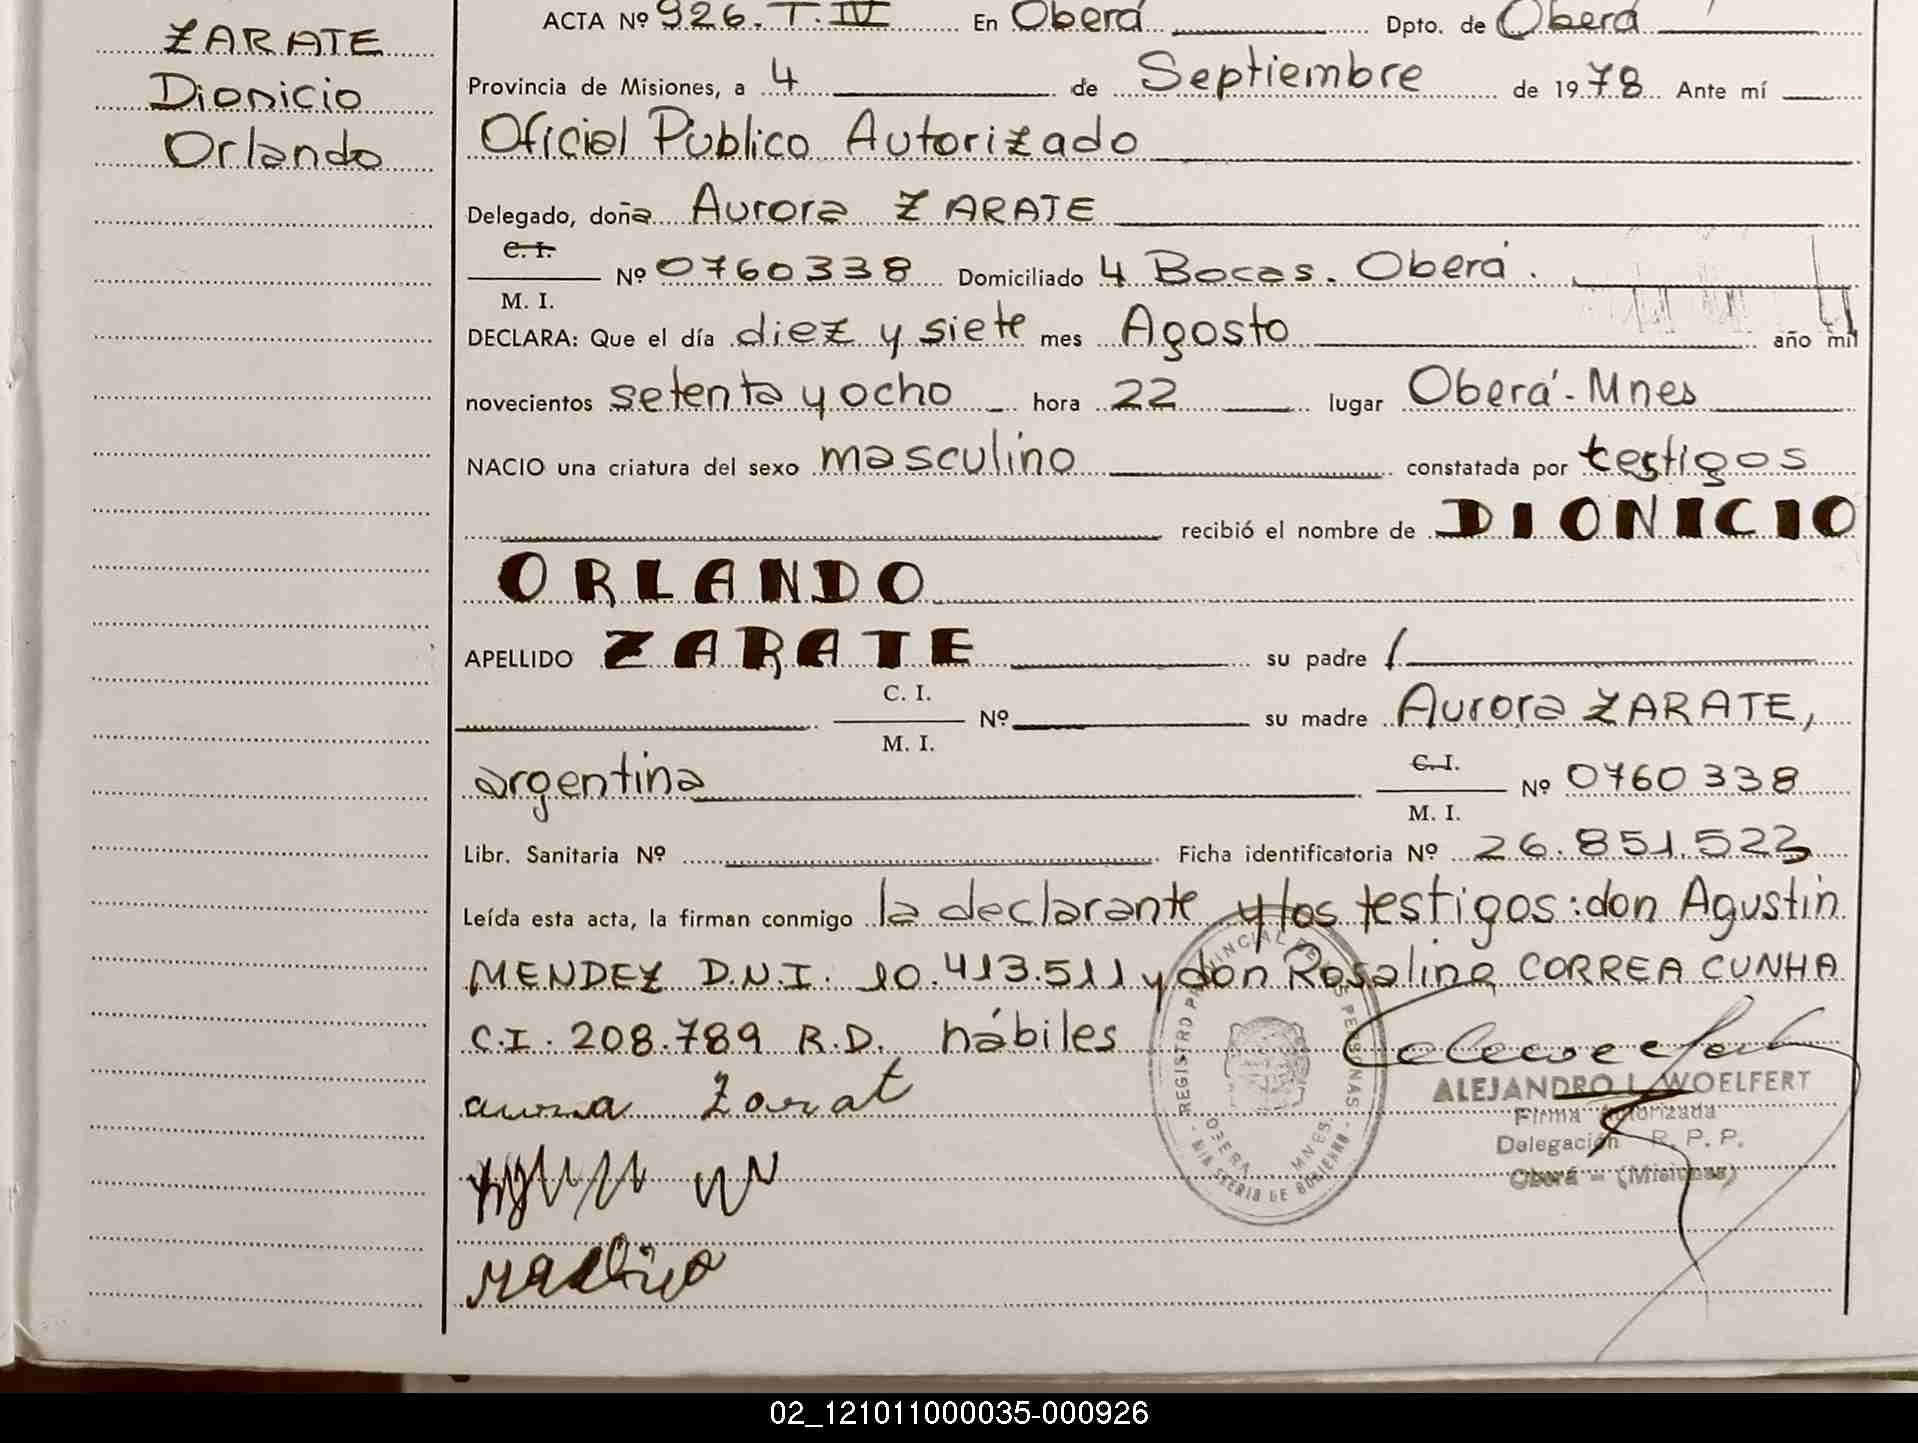 ZARATE
Dionicio
Orlando
ACTA Nº 926. T. IV En Oberá Dpto. de Oberá
Provincia de Misiones, a 4 de Septiembre de 1978 Ante mí
Oficial Público Autorizado
Delegado, doña Aurora ZARATE
C. I.
M. I.
Nº 0760338 Domiciliado 4 Bocas. Oberá.
DECLARA: Que el día diez y siete mes Agosto año mil
novecientos setenta y ocho hora 22 lugar Oberá-Mnes
NACIO una criatura del sexo masculino constatada por testigos
recibió el nombre de DIONICIO
ORLANDO
APELLIDO ZARATE su padre /
C. I.
M. I.
Nº su madre Aurora ZARATE,
argentina
C. I.
M. I.
Nº 0760338
Libr. Sanitaria Nº Ficha identificatoria Nº 26.851.523
Leída esta acta, la firman conmigo la declarante y los testigos: don Agustín
MENDEZ D.N.I. 10.413.511 y don Rosalino CORREA CUNHA
C.I. 208.789 R.D. hábiles
REGISTRO PROVINCIAL DE LAS PERSONAS
OBERA MNES.
MINISTERIO DE GOBIERNO
ALEJANDRO L. WOELFERT
Firma Autorizada
Delegación R. P. P.
Oberá - (Misiones)
aurora Zarat
02_121011000035-000926